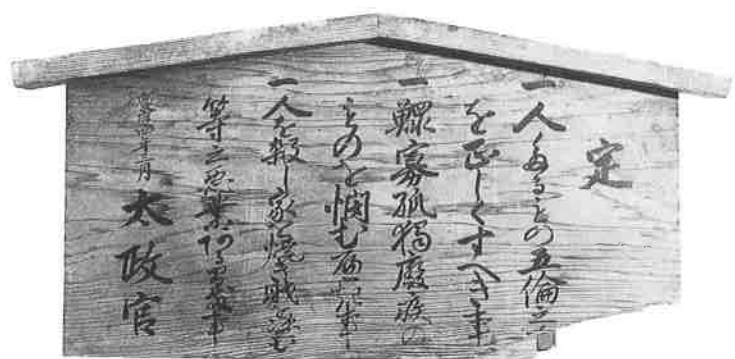 定
一人たるもの五倫之道
を正しくすへき事
一鰥寡孤獨廢疾の
ものを憫む可き事
一人を殺し家を焼き財を盗む
等之惡業ある間敷事
慶應四年三月
太政官